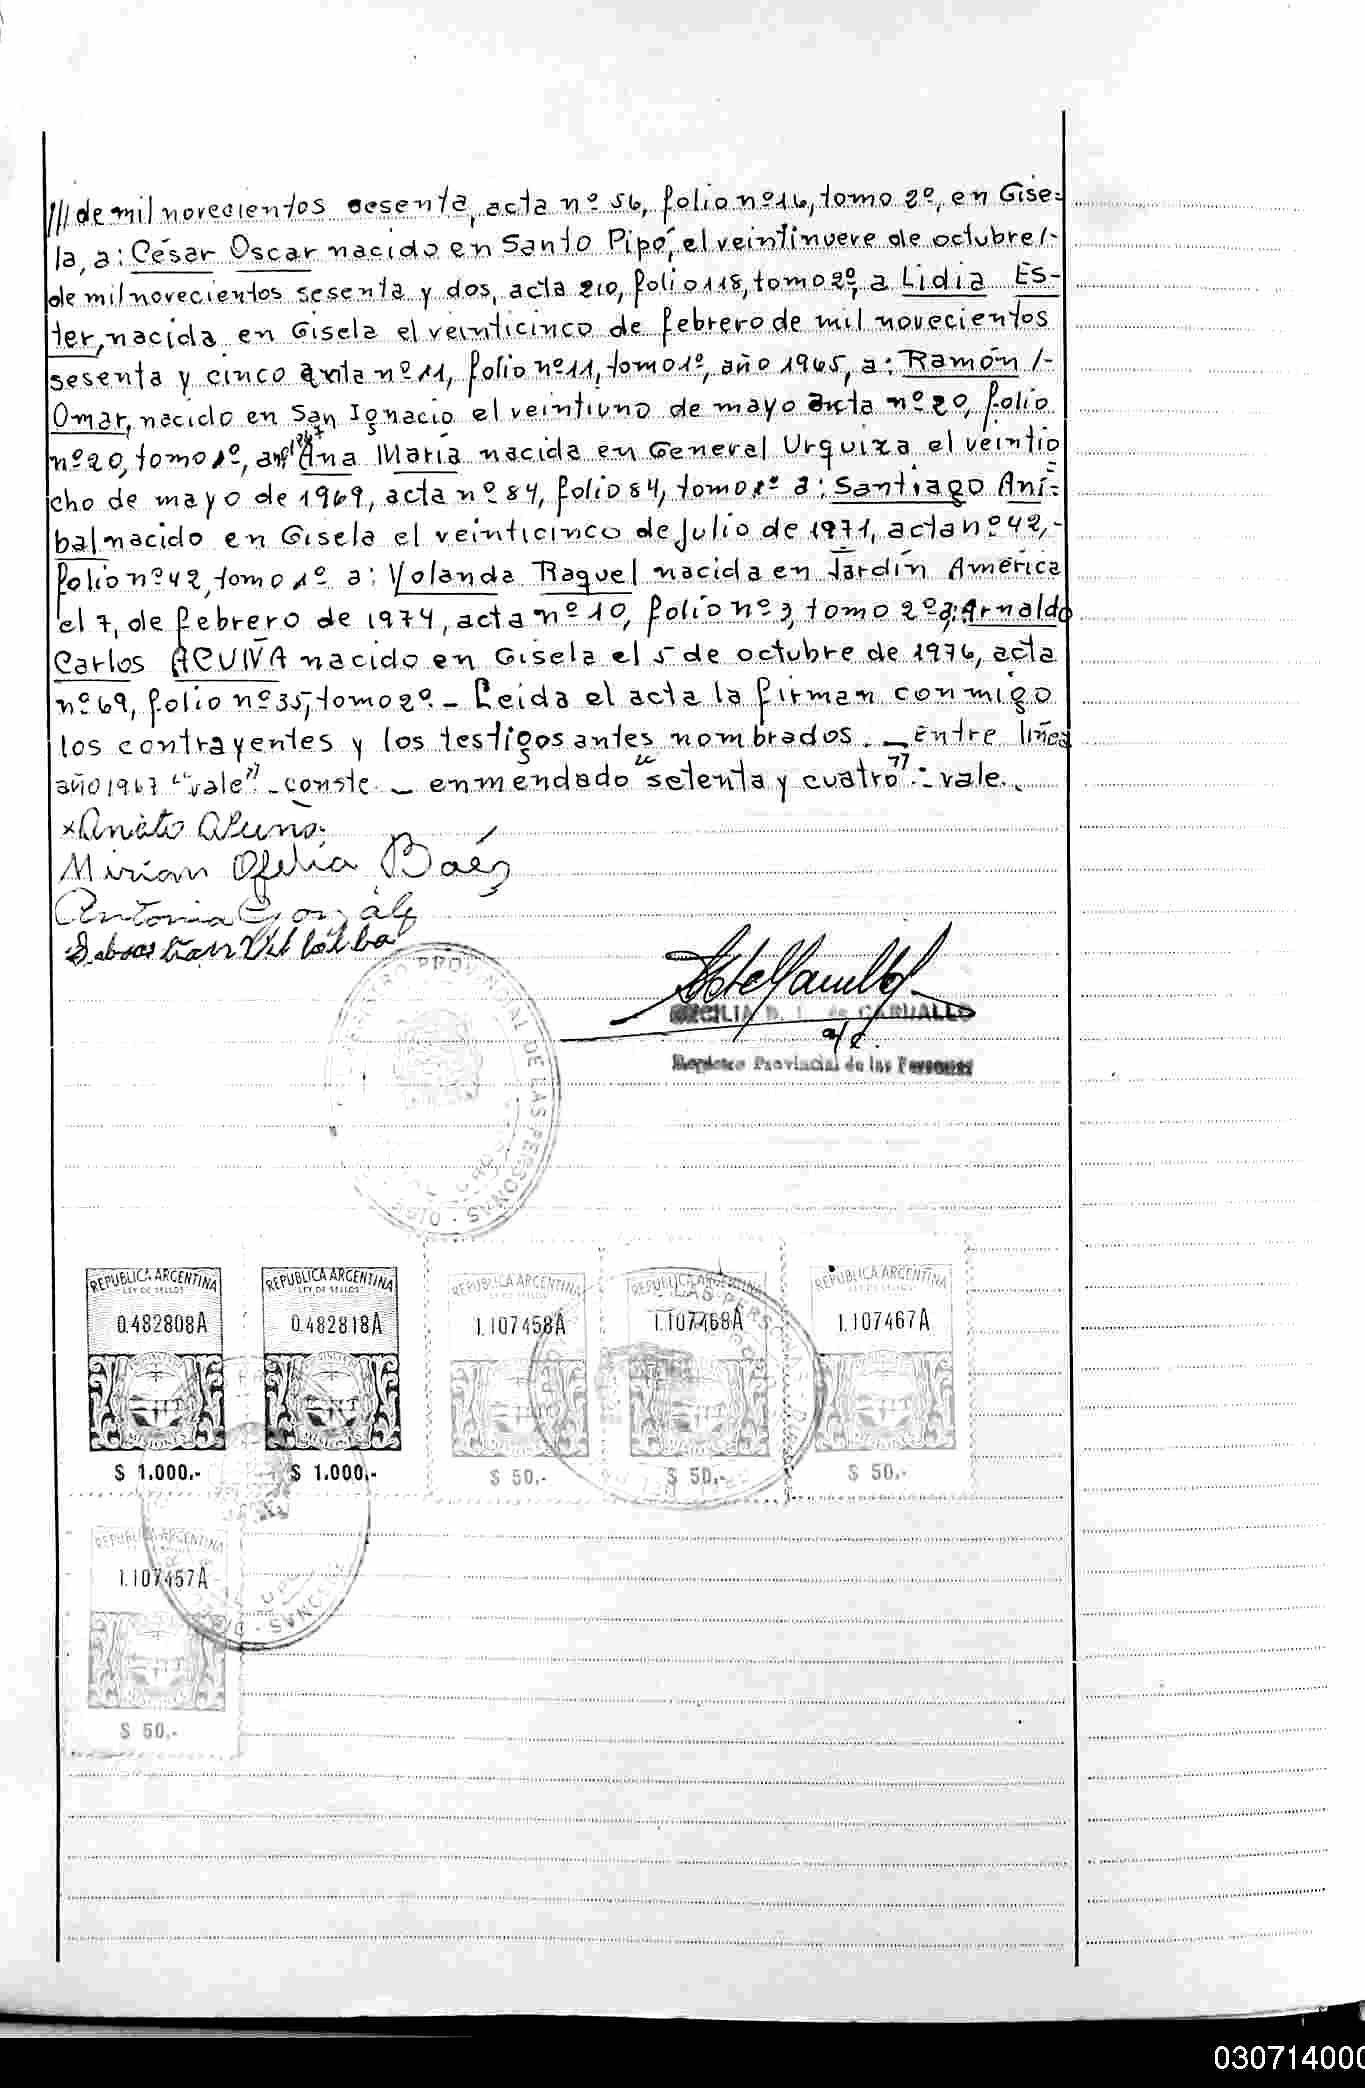 /// de mil novecientos sesenta, acta nº 56, folio nº 16, tomo 2º, en Gise=
la, a: César Oscar nacido en Santo Pipó, el veintinueve de octubre /-
de mil novecientos sesenta y dos, acta 210, folio 118, tomo 2º, a Lidia Es-
ter, nacida en Gisela el veinticinco de febrero de mil novecientos
sesenta y cinco acta nº 11, folio nº 11, tomo 1º, año 1965, a: Ramón /-
Omar, nacido en San Ignacio el veintiuno de mayo acta nº 20, folio
nº 20, tomo 1º, Ana María nacida en General Urquiza el veintio
cho de mayo de 1969, acta nº 84, folio 84, tomo 1º a: Santiago Aní=
bal nacido en Gisela el veinticinco de Julio de 1971, acta nº 42,-
folio nº 42, tomo 1º a: Yolanda Raquel nacida en Jardín América
el 7, de febrero de 1974, acta nº 10, folio nº 3, tomo 2º a: Arnaldo
Carlos ACUÑA nacido en Gisela el 5 de octubre de 1976, acta
nº 69, folio nº 35, tomo 2º. - Leida el acta la firman conmigo
los contrayentes y los testigos antes nombrados. - Entre línea
año 1967 "vale" - conste - enmendado "setenta y cuatro" - vale.
Mirian Ofelia Baéz
Antonia Gonzál
Sebastian Villalba
REGISTRO PROVINCIAL DE LAS PERSONAS
CECILIA D. L. de CARBALLO
a/c.
Registro Provincial de las Personas
REPUBLICA ARGENTINA REPUBLICA ARGENTINA REPUBLICA ARGENTINA REPUBLICA ARGENTINA REPUBLICA ARGENTINA
LEY DE SELLOS LEY DE SELLOS
0.482808A 0.482818A 1.107458A 1.107468A 1.107467A
$ 1.000.- $ 1.000.- $ 50.- $ 50.- $ 50.-
REPUBLICA ARGENTINA
1.107457A
$ 50.-
030714000